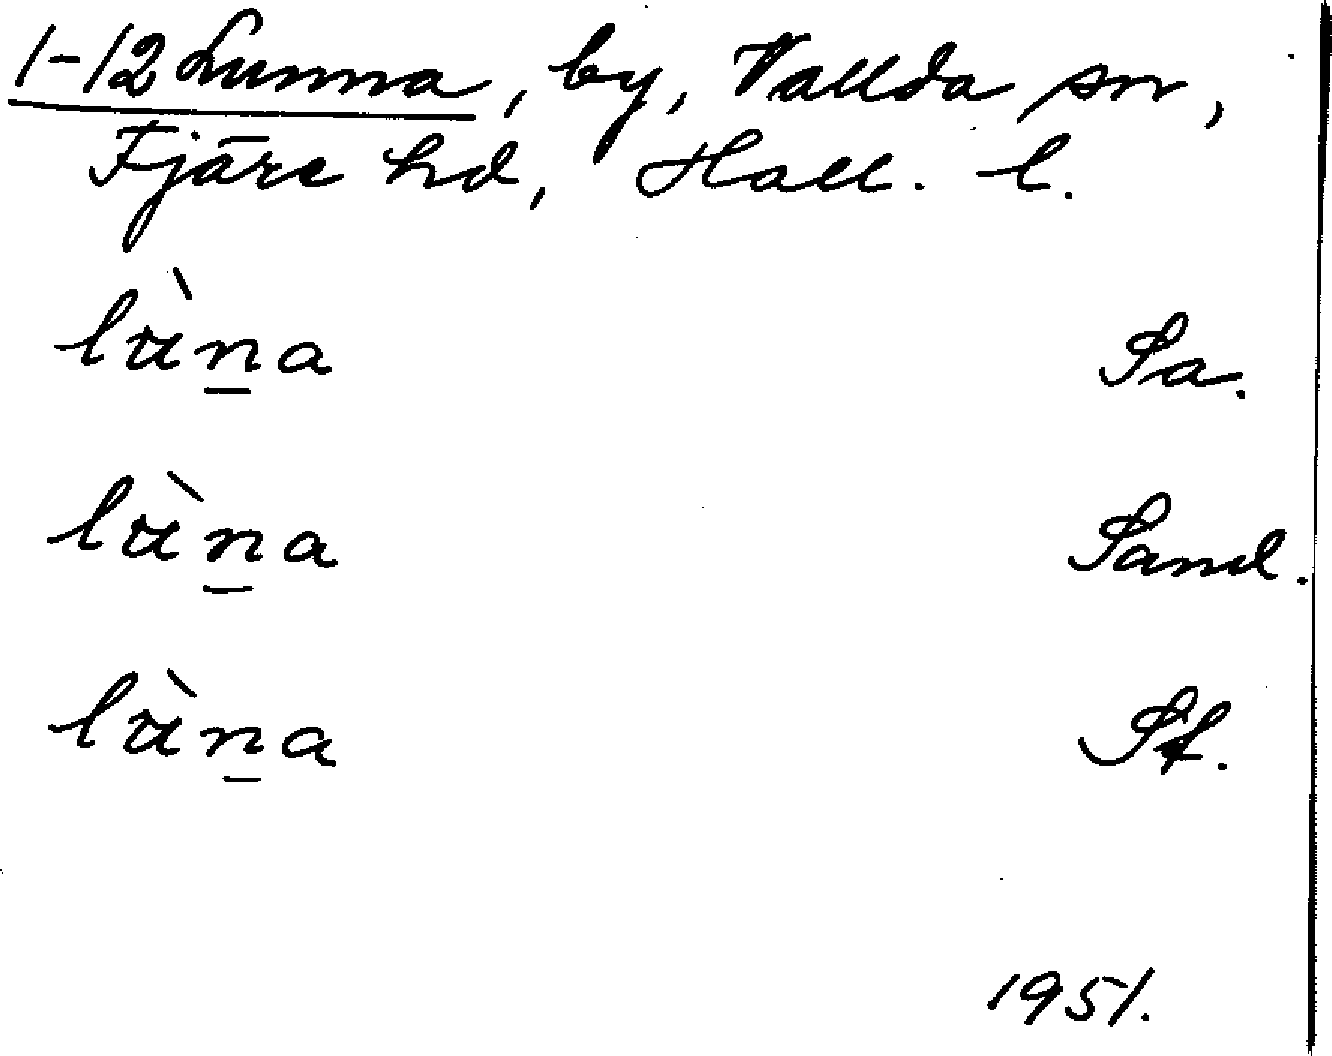 1-12 Lunna, by, Vallda sn,
Fjäre hd, Hall. l.
lùn̲a Sa.
lùn̲a Sand.
lùn̲a St.
1951.